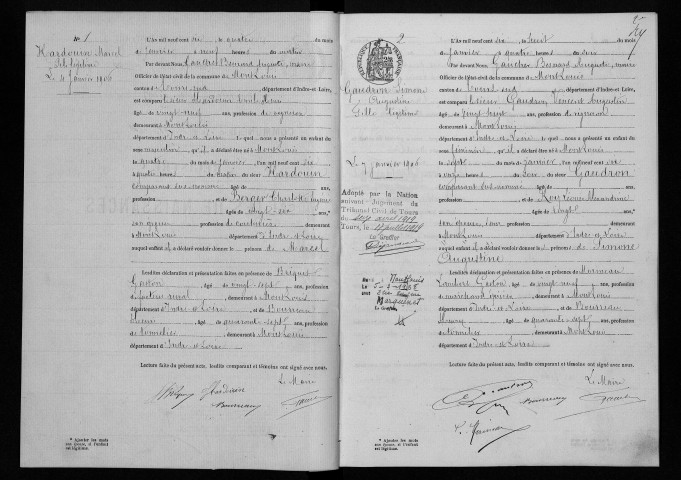 N° 1
Hardouin Marcel
fils légitime
Le 4 Janvier 1906
L'An mil neuf cent six le quatre du mois
de Janvier à neuf heures du matin
Par devant Nous, Gaucher Bernard Auguste, maire
Officier de l'état civil de la commune de MontLouis
canton de Tours sud département d'Indre-et-Loire,
est comparu le sieur Hardouin
âgé de vingt neuf ans, profession de vigneron
demeurant à MontLouis
département d'Indre et Loire lequel nous a présenté un enfant du
sexe masculin qu'il a déclaré être né à MontLouis
le quatre du mois de Janvier l'an mil neuf cent six
à quatre heures du matin du sieur Hardouin
comparant sus nommé âgé de ans, profession
de et de Berger Charlotte
âgée de vingt six ans,*
son épouse profession de couturière demeurant
à MontLouis département d'Indre et Loire
auquel enfant il a déclaré vouloir donner le prénom de Marcel
Lesdites déclaration et présentation faites en présence de
Gaston, âgé de vingt sept ans, profession
de demeurant à MontLouis
département d'Indre et Loire, et de Bourreau
, âgé de quarante sept ans, profession
de tonnelier demeurant à MontLouis
département d'Indre et Loire
Lecture faite du présent acte, lesdits comparant et témoins ont signé avec nous.
Le Maire
Hardouin
Bourreau
* Ajouter les mots
son épouse, si l'enfant
est légitime.
2
RÉPUBLIQUE FRANÇAISE
Gaudron Simone
Augustine
Fille légitime
Le 7 janvier 1906
Adopté par la Nation
suivant Jugement du
Tribunal Civil de Tours
du avril 1919
Tours, le juillet 1919
Le Greffier
L'An mil neuf cent six le huit du mois
de Janvier à quatre heures du soir
Par devant Nous, Gaucher Bernard Auguste, maire
Officier de l'état civil de la commune de MontLouis
canton de Tours sud département d'Indre-et-Loire,
est comparu le sieur Gaudron Vincent Augustin
âgé de vingt huit ans, profession de vigneron
demeurant à MontLouis
département d'Indre et Loire lequel nous a présenté un enfant du
sexe féminin qu'il a déclaré être né à MontLouis
le sept du mois de Janvier l'an mil neuf cent six
à onze heures du soir du sieur Gaudron
comparant sus nommé âgé de ans, profession
de et de Roy Alexandrine
âgée de vingt ans,*
son épouse profession de demeurant
à MontLouis département d'Indre et Loire
auquel enfant il a déclaré vouloir donner les prénoms de Simone
Augustine
Lesdites déclaration et présentation faites en présence de Mermeau
Lambert Gaston, âgé de vingt neuf ans, profession
de marchand demeurant à MontLouis
département d'Indre et Loire et de Bourreau
, âgé de quarante sept ans, profession
de tonnelier demeurant à MontLouis
département d'Indre et Loire
Lecture faite du présent acte, lesdits comparant et témoins ont signé avec nous.
Le Maire
Gaudron
Bourreau
* Ajouter les mots
son épouse, si l'enfant
est légitime.